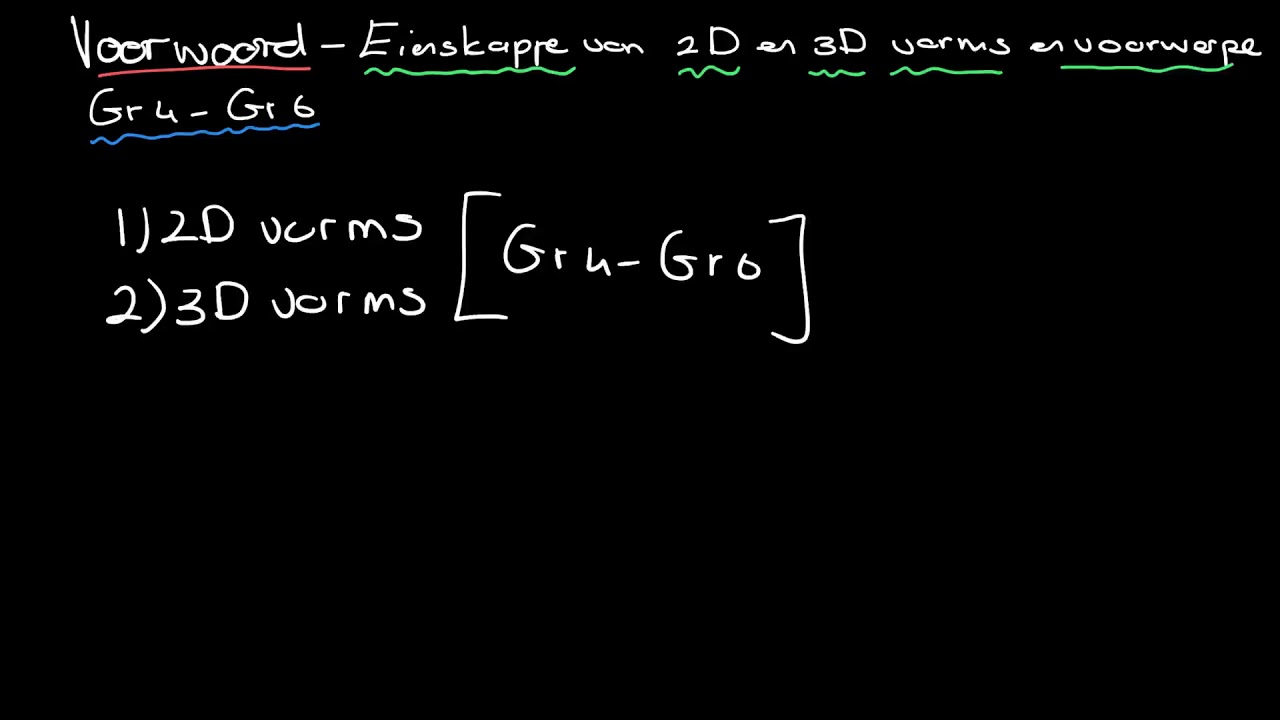 Voorwoord - Eienskappe van 2D en 3D vorms en voorwerpe
Gr 4 - Gr 6
1) 2D vorms
2) 3D vorms
[Gr 4 - Gr 6]